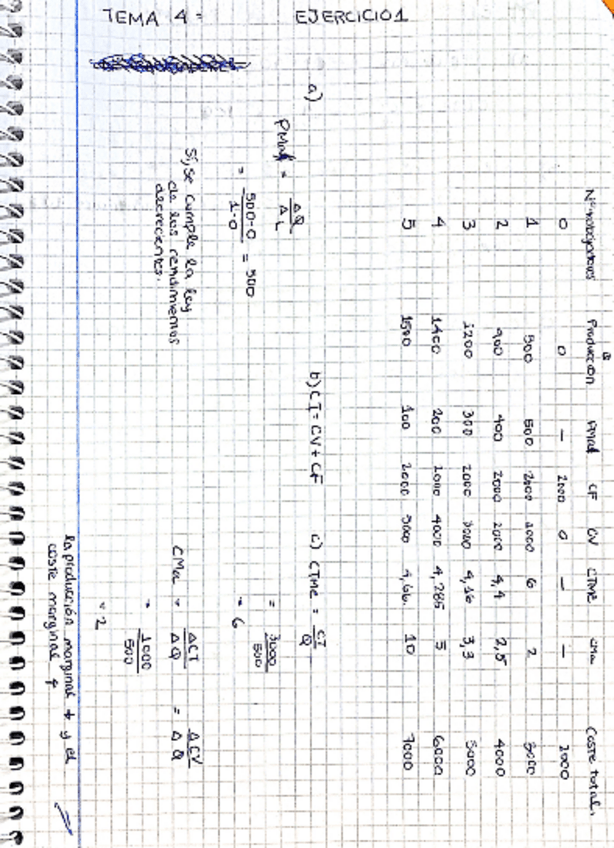 TEMA 4: EJERCICIO 1
Nº trabajadores Producción PMaL CF CV CTMe CMa Coste total
0 0 — 2000 0 — — 2000
1 500 500 2000 1000 6 2 3000
2 900 400 2000 2000 4,4 2,5 4000
3 1200 300 2000 3000 4,16 3,3 5000
4 1400 200 2000 4000 4,285 5 6000
5 1500 100 2000 5000 4,66 10 7000
a)
PMaL = ΔQ / ΔL
= 500-0 / 1-0 = 500
Sí, se cumple la ley
de los rendimientos
decrecientes.
b) CT = CV + CF
c) CTMe = CT / Q
= 3000 / 500
= 6
CMa = ΔCT / ΔQ = ΔCV / ΔQ
= 1000 / 500
= 2
la producción marginal ↓ y el
coste marginal ↑